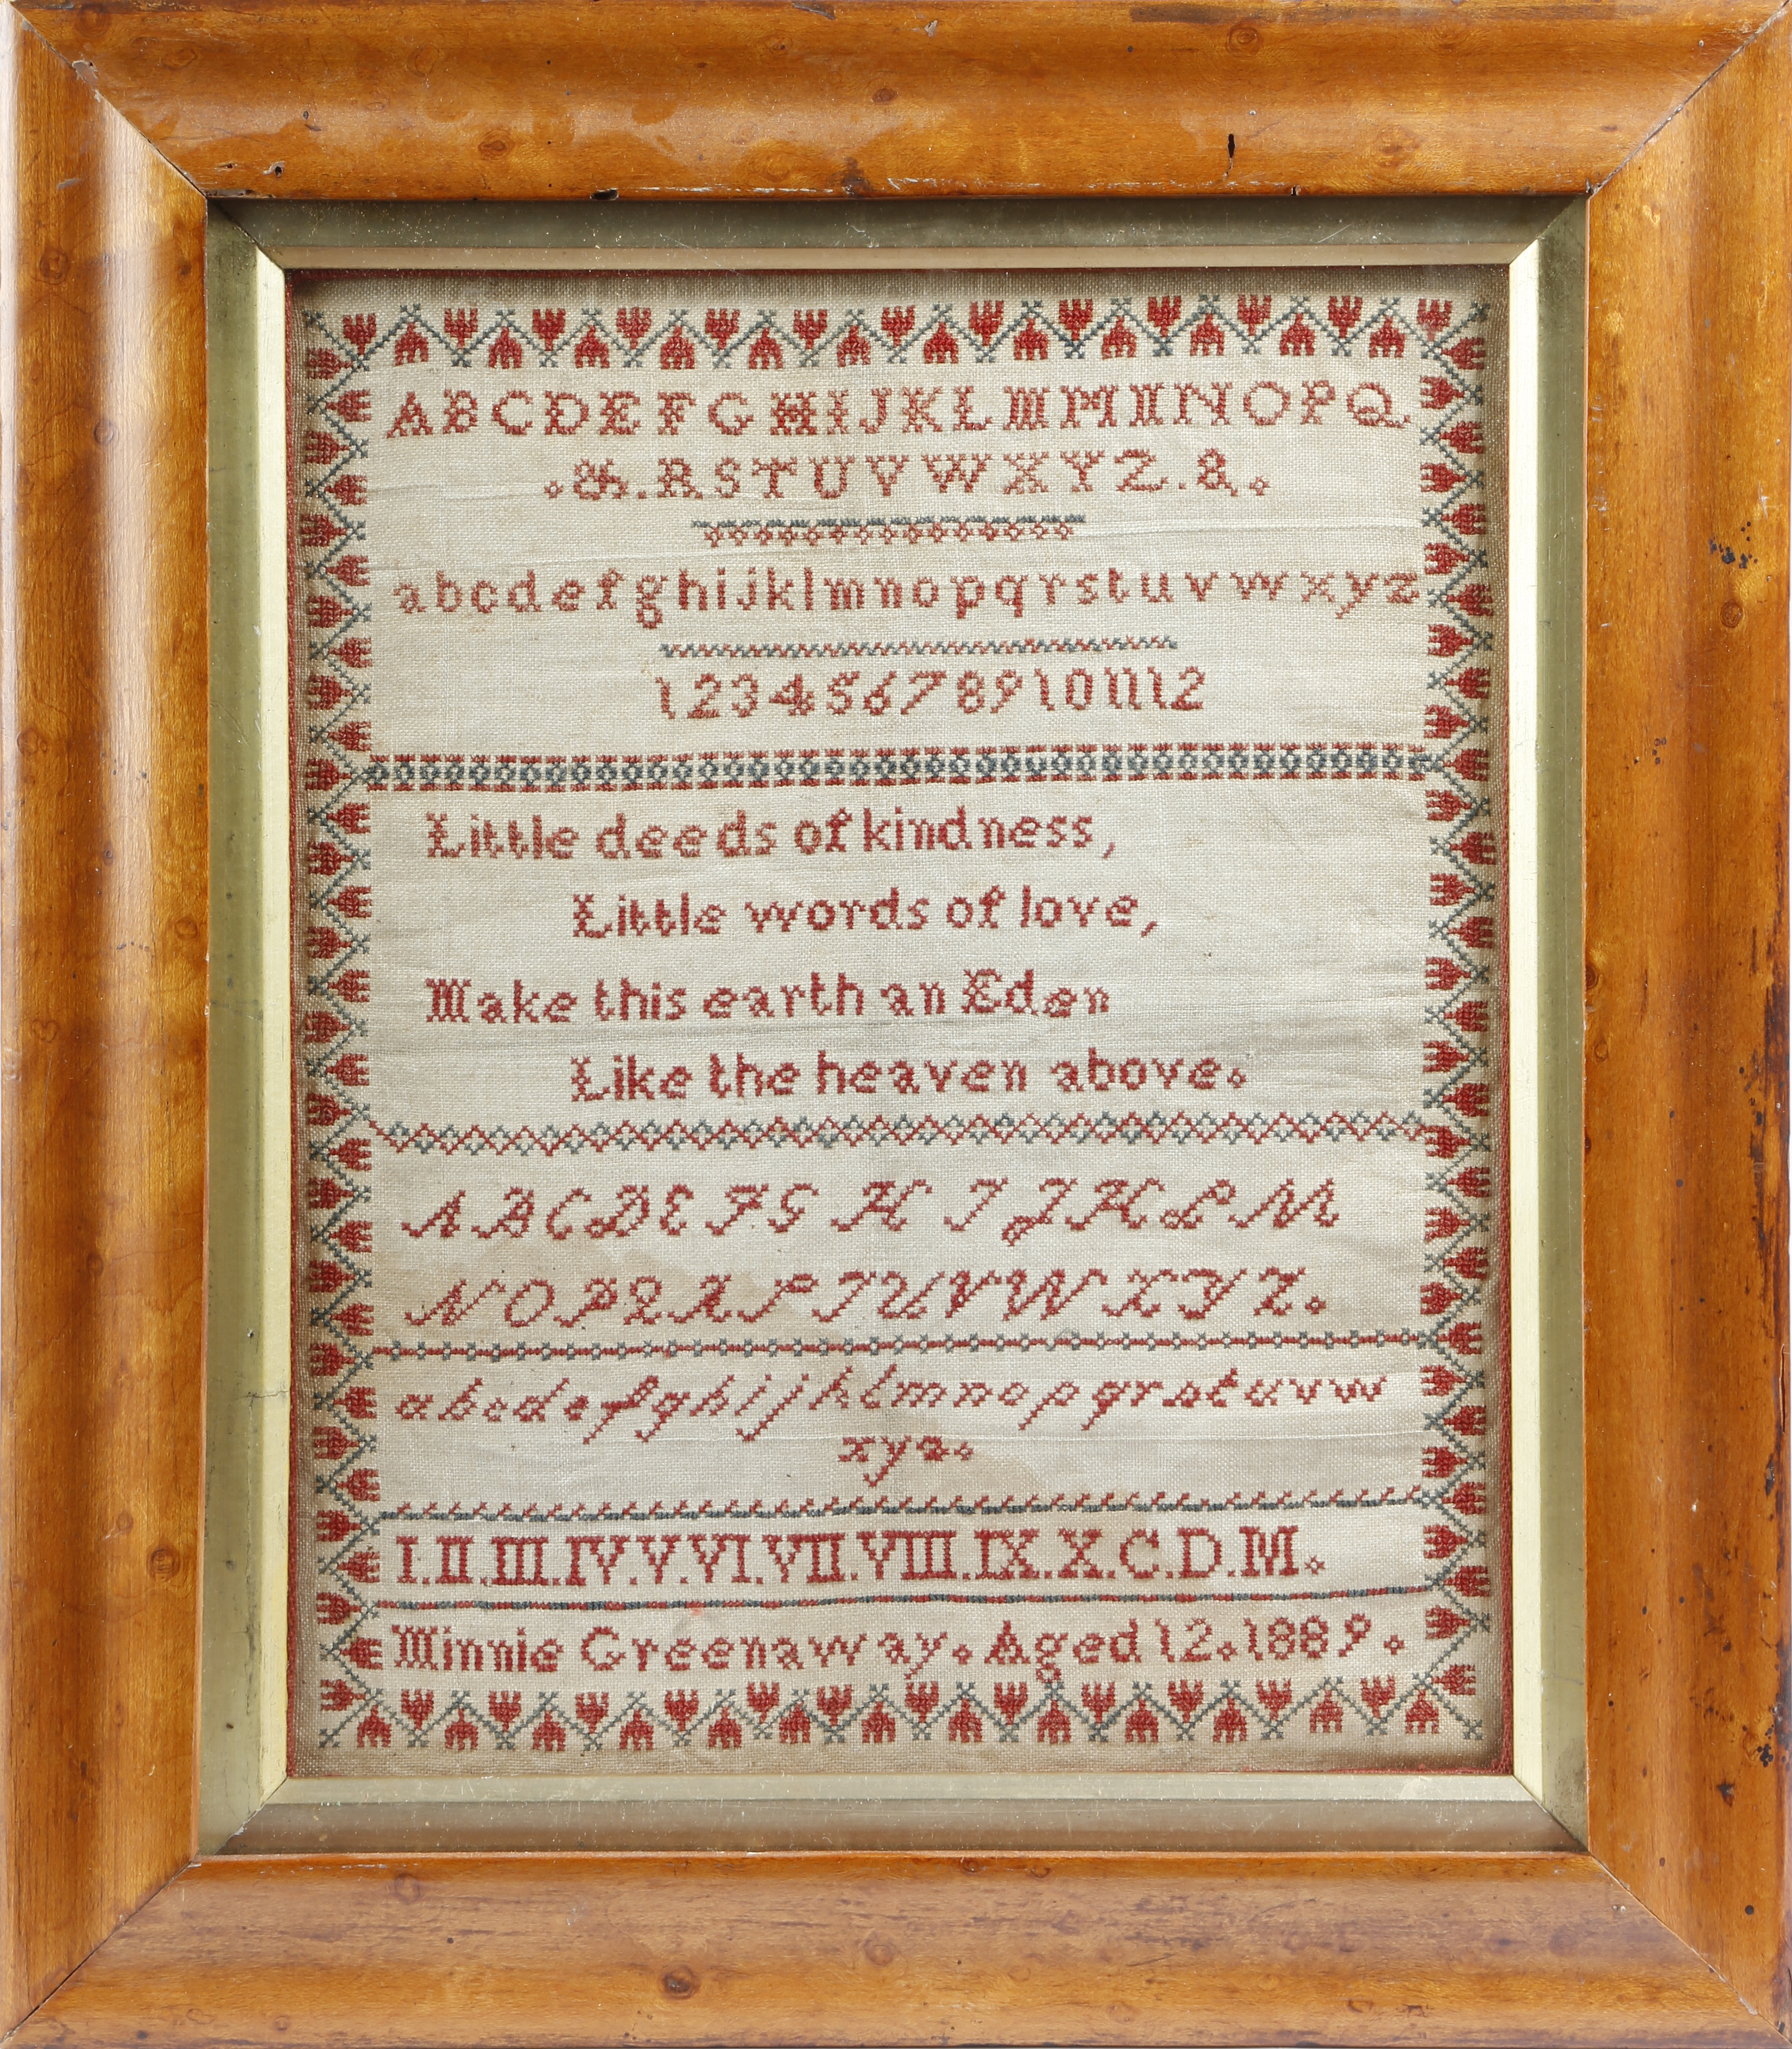 A B C D E F G H I J K L M M N N O P Q
. & . R S T U V W X Y Z . & .
a b c d e f g h i j k l m n o p q r s t u v w x y z
1 2 3 4 5 6 7 8 9 10 11 12
Little deeds of kindness,
Little words of love,
Make this earth an Eden
Like the heaven above.
A B C D E F G H I J K L M
N O P Q R S T U V W X Y Z .
a b c d e f g h i j k l m n o p q r s t u v w
x y z .
I. II. III. IV. V. VI. VII. VIII. IX. X. C. D. M.
Minnie Greenaway. Aged 12. 1889.